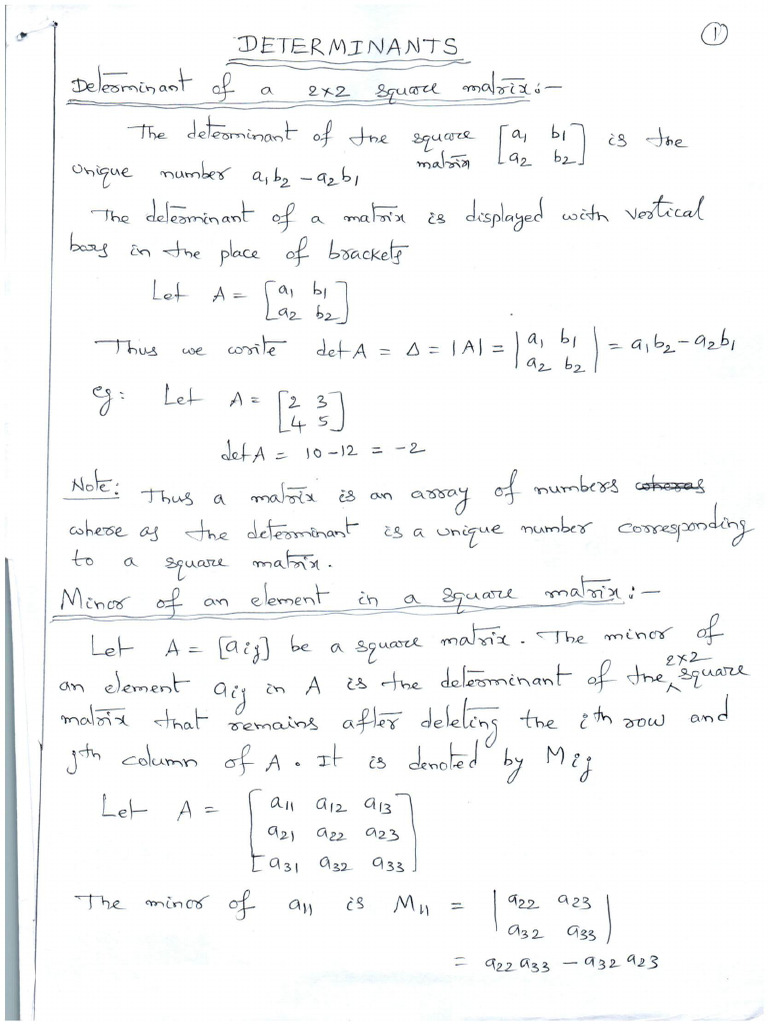 ①
DETERMINANTS
Determinant of a 2×2 square matrix :-
The determinant of the square matrix [a1 b1
a2 b2] is the
unique number a1b2 - a2b1
The determinant of a matrix is displayed with vertical
bars in the place of brackets
Let A = [a1 b1
a2 b2]
Thus we write det A = Δ = |A| = |a1 b1
a2 b2| = a1b2 - a2b1
eg: Let A = [2 3
4 5]
det A = 10 - 12 = -2
Note: Thus a matrix is an array of numbers
where as the determinant is a unique number corresponding
to a square matrix.
Minor of an element in a square matrix :-
Let A = [aij] be a square matrix. The minor of
an element aij in A is the determinant of the 2×2 square
matrix that remains after deleting the ith row and
jth column of A. It is denoted by Mij
Let A = [a11 a12 a13
a21 a22 a23
a31 a32 a33]
The minor of a11 is M11 = |a22 a23
a32 a33|
= a22 a33 - a32 a23